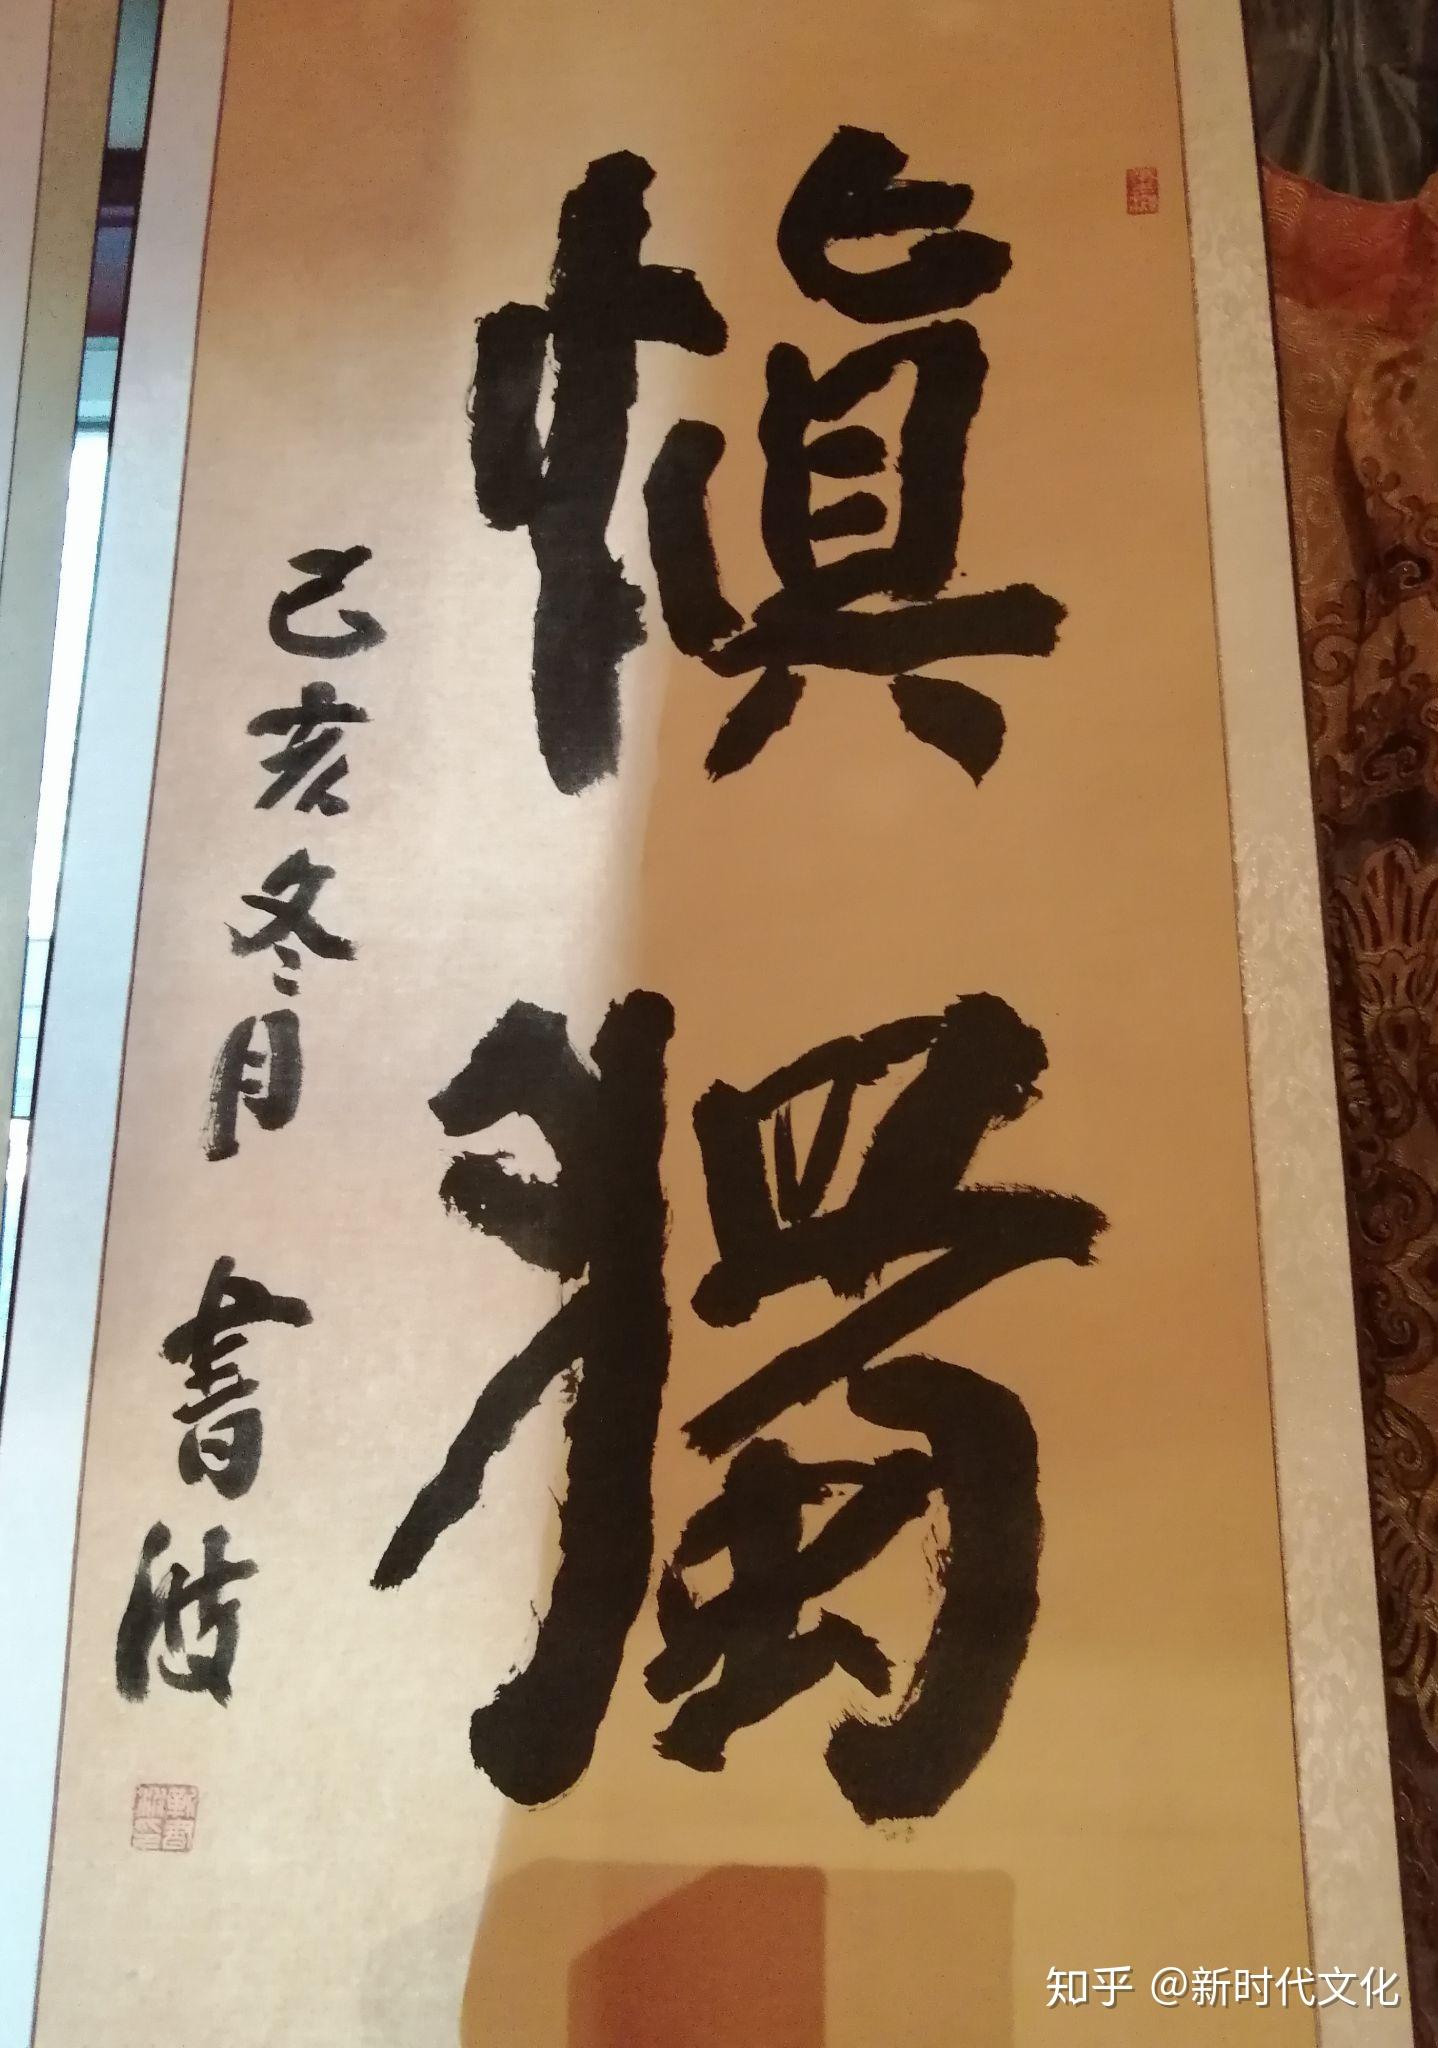 慎獨
己亥冬月 書波
知乎 @新时代文化